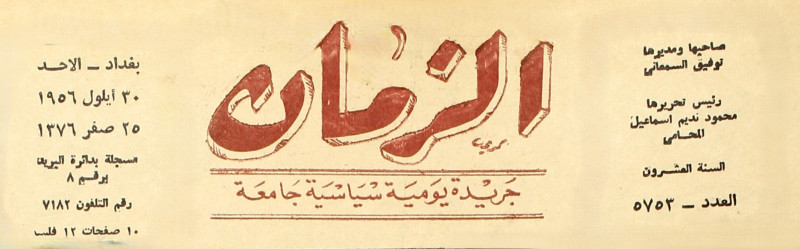 صاحبها ومديرها
توفيق السمعاني
رئيس تحريرها
محمود نديم اسماعيل
المحامي
السنة العشرون
العدد – ٥٧٥٣
الزمان
جريدة يومية سياسية جامعة
بغداد – الاحد
٣٠ أيلول ١٩٥٦
٢٥ صفر ١٣٧٦
مسجلة بدائرة البريد
برقم ٨
رقم التلفون ٧١٨٢
١٠ صفحات ١٢ فلسا